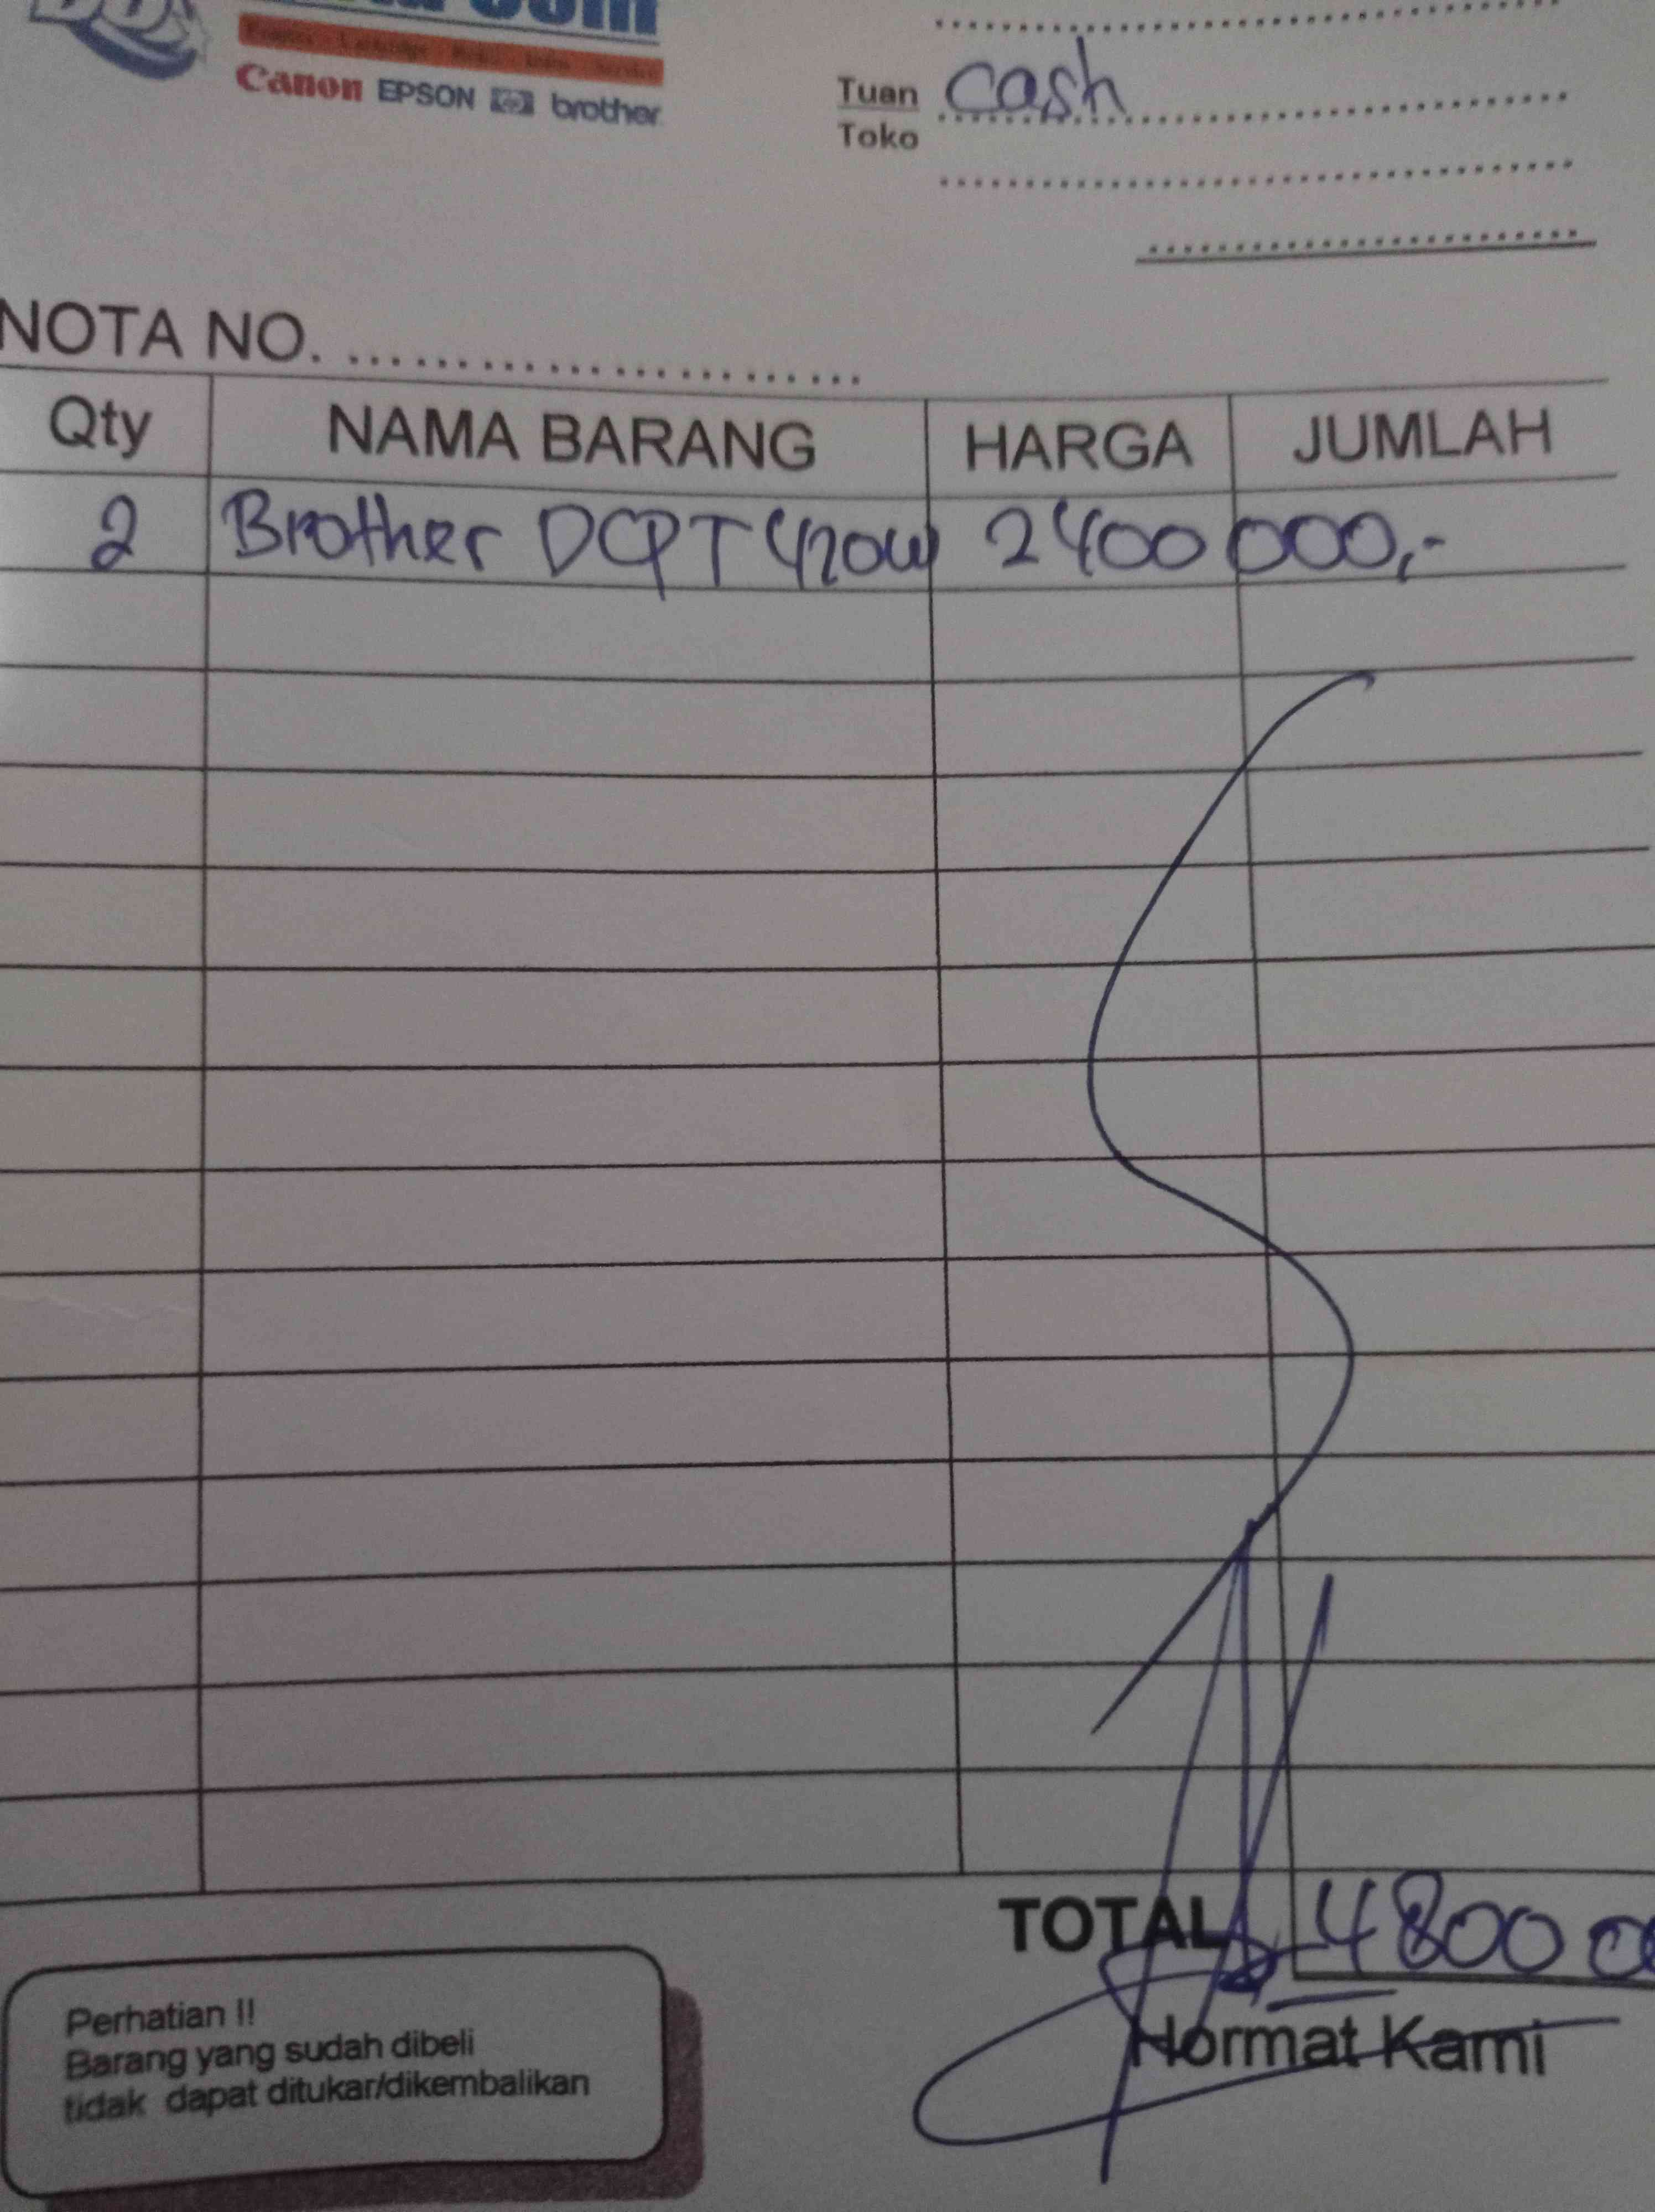 Com
Canon EPSON hp brother
Tuan cash
Toko
NOTA NO.
Qty NAMA BARANG HARGA JUMLAH
2 Brother DCPT 420W 2400 000,-
TOTAL 4800
Hormat Kami
Perhatian !!
Barang yang sudah dibeli
tidak dapat ditukar/dikembalikan